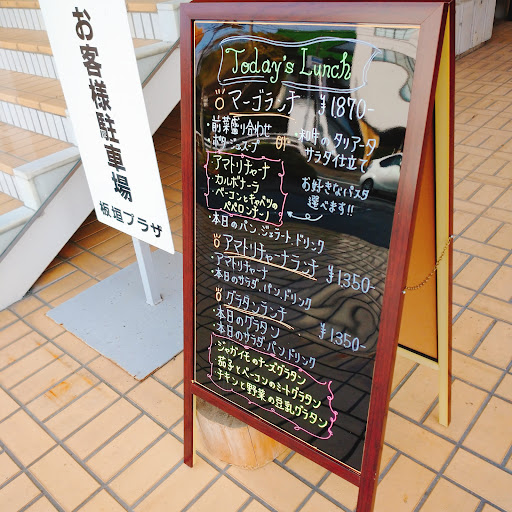 お客様駐車場
板垣プラザ
Today's Lunch
マーゴランチ ¥1,870-
・前菜盛り合わせ
・ポタージュスープ or ・和牛のタリアータ サラダ仕立て
・アマトリチャーナ
・カルボナーラ
・ベーコンとキャベツの
ペペロンチーノ
お好きなパスタ
選べます!!
・本日のパン,ジェラート,ドリンク
アマトリチャーナランチ ¥1,350-
・アマトリチャーナ
・本日のサラダ,パン,ドリンク
グラタンランチ ¥1,350-
・本日のグラタン
・本日のサラダ,パン,ドリンク
ジャガイモのチーズグラタン
茄子とベーコンのミートグラタン
チキンと野菜の豆乳グラタン